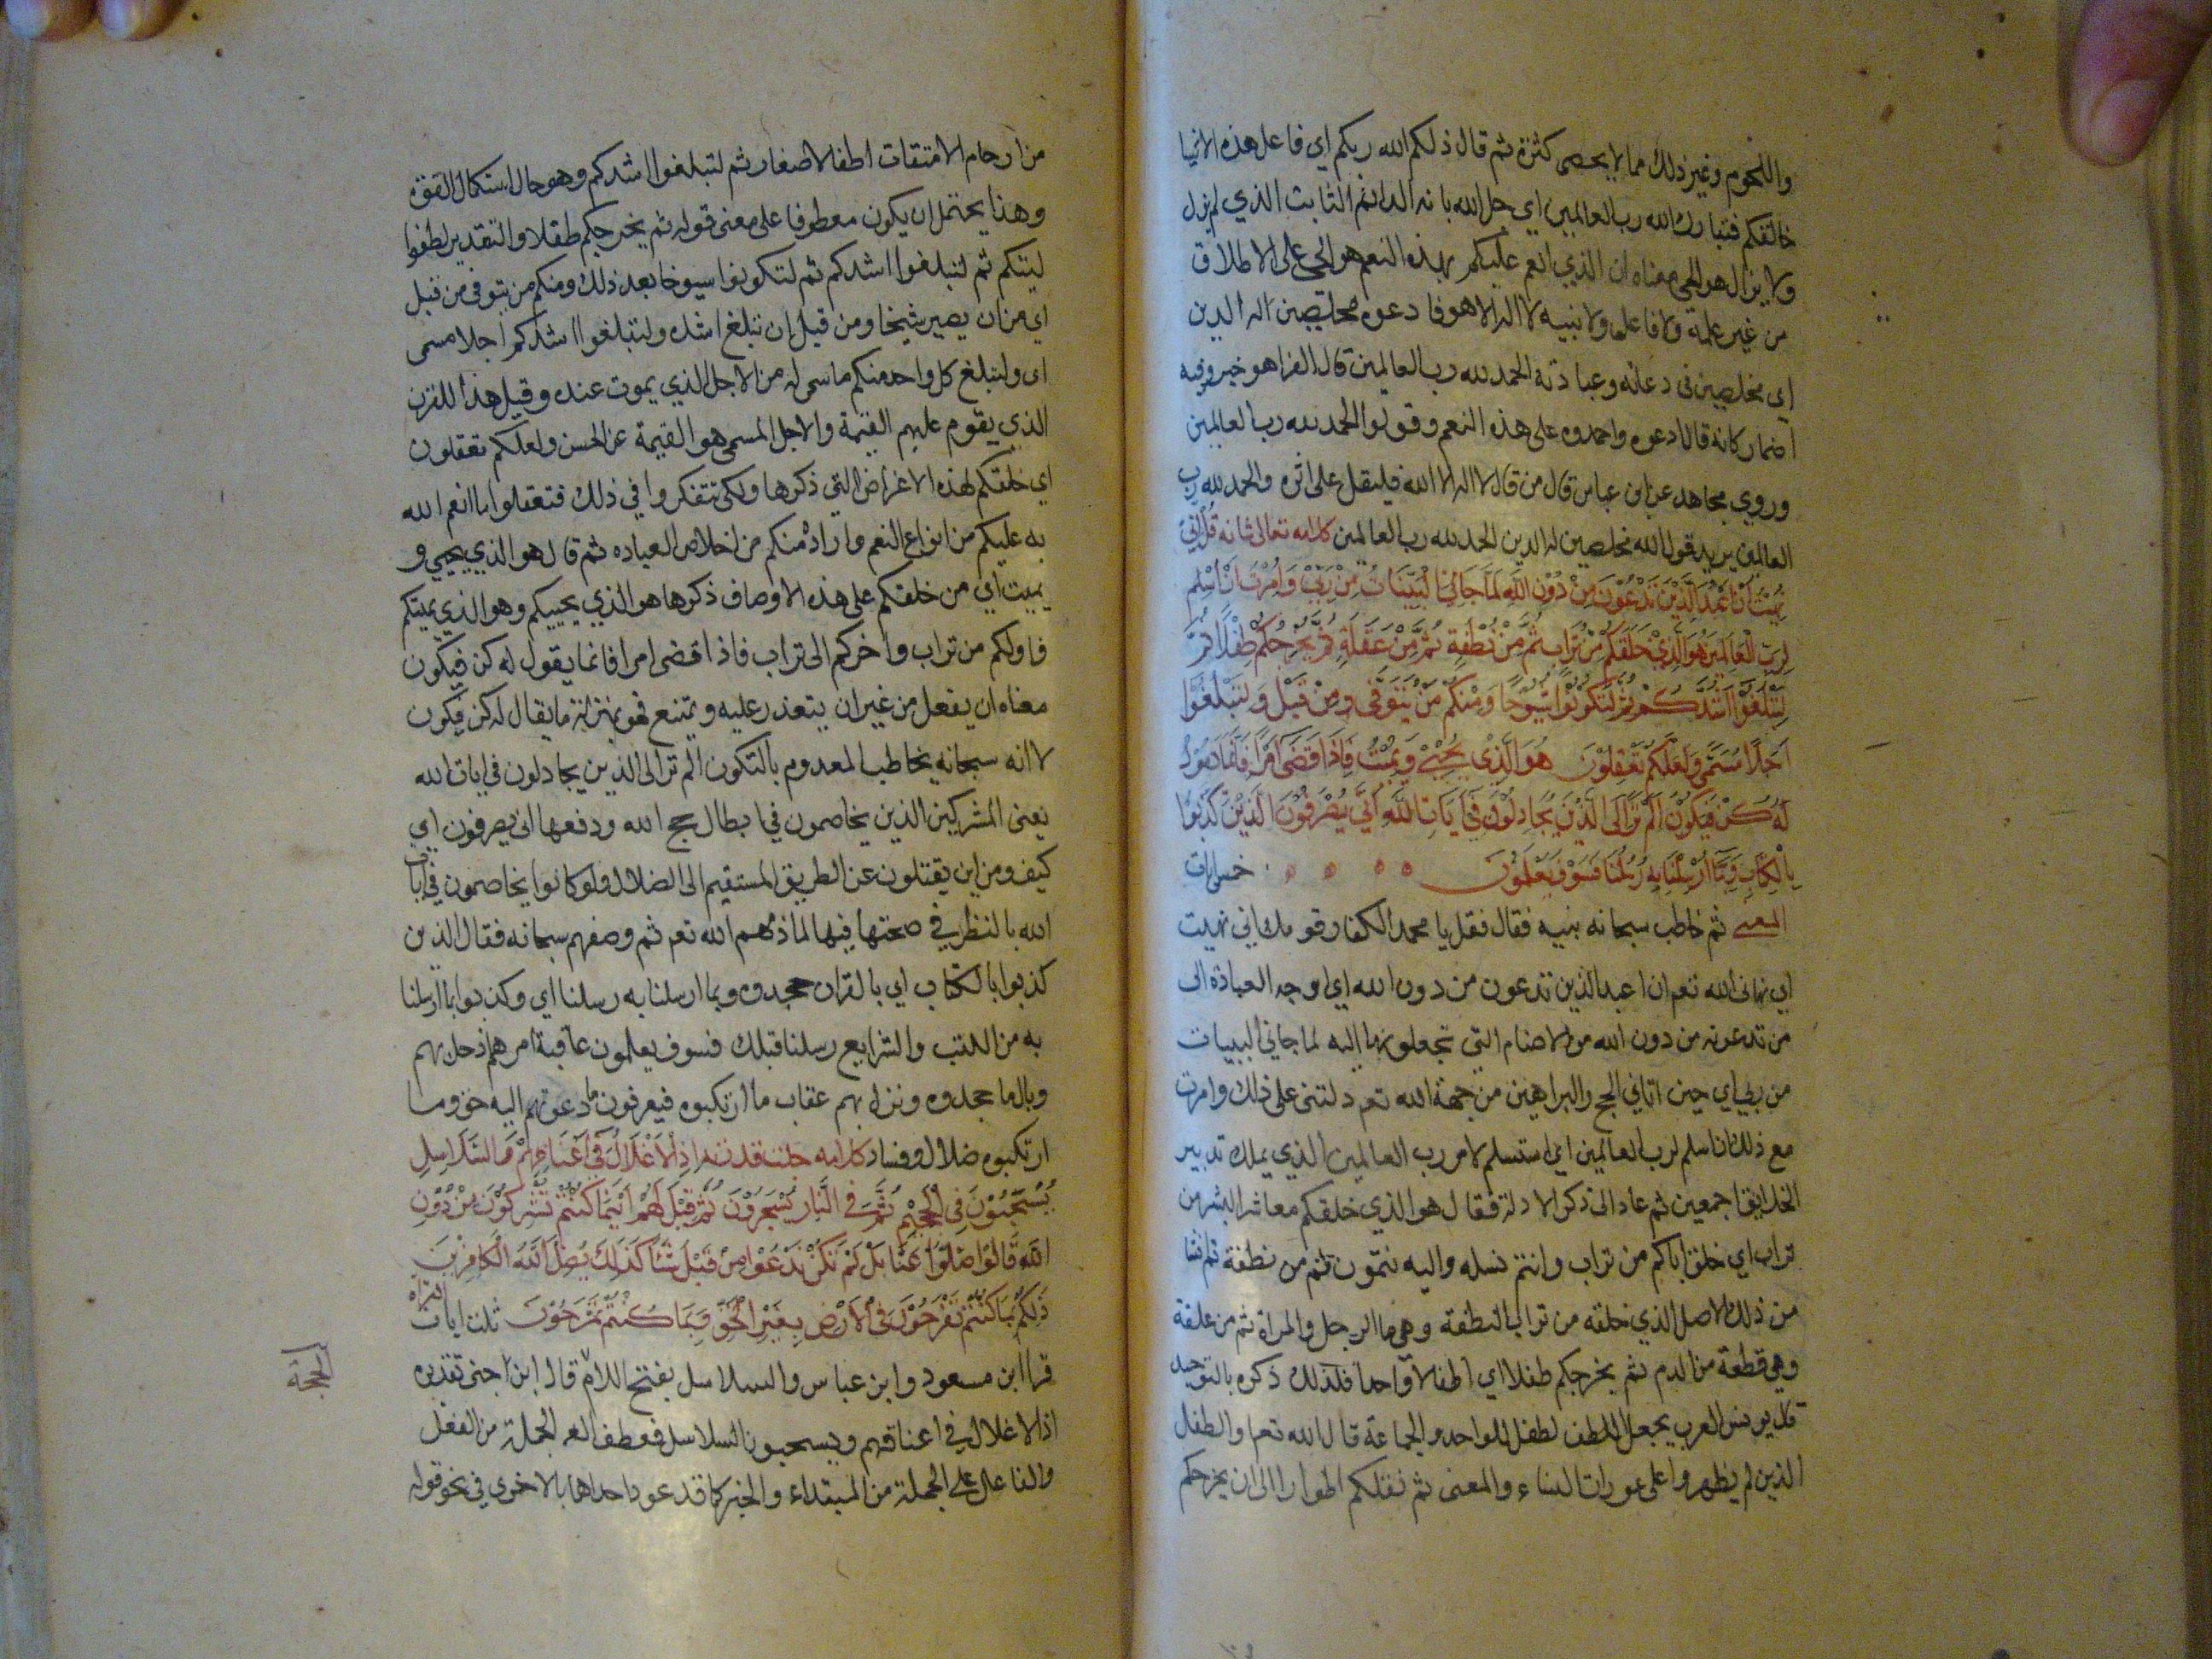 واللحوم وغير ذلك مما لا يحصى كثرة ثم قال ذلكم الله ربكم اي فاعل هذه الاشيا
خالقكم فتبارك الله رب العالمين اي جل الله بانه الدائم الثابت الذي لم يزل
ولا يزال هو الحي معناه ان الذي انعم عليكم بهذه النعم هو الحي على الاطلاق
من غير علة ولا فاعل ولا بنيه لا اله الا هو فادعوه مخلصين له الدين
اي مخلصين في دعائه وعبادته الحمد لله رب العالمين قال الفرا هو خبر وفيه
اضمار كانه قال ادعوه واحمدوه على هذه النعم وقولوا الحمد لله رب العالمين
وروي مجاهد عن ابن عباس قال من قال لا اله الا الله فليقل على اثره والحمد لله رب
العالمين يريد قول الله مخلصين له الدين الحمد لله رب العالمين كلامه تعالى شانه قُل اِنّي
نُهِيتُ اَن اَعْبُدَ الَّذِيْنَ تَدْعُوْنَ مِنْ دُوْنِ اللَّهِ لَمَّا جَائنيَ الْبَيِّنَاتُ مِنْ رَبِّيْ وَاُمِرْتُ اَنْ اُسْلِمَ
لِرَبِّ الْعَالَمِيْنَ هُوَ الَّذِيْ خَلَقَكُمْ مِنْ تُرَابٍ ثُمَّ مِنْ نُطْفَةٍ ثُمَّ مِنْ عَلَقَةٍ ثُمَّ يُخْرِجُكُمْ طِفْلًا ثُمَّ
لِتَبْلُغُوْا اَشُدَّكُمْ ثُمَّ لِتَكُوْنُوْا شُيُوْخًا وَمِنْكُمْ مَنْ يُتَوَفّى مِنْ قَبْلُ وَلِتَبْلُغُوْا
اَجَلًا مُسَمًّى وَلَعَلَّكُمْ تَعْقِلُوْنَ هُوَ الَّذِيْ يُحْيِيْ وَيُمِيْتُ فَاِذَا قَضَى اَمْرًا فَاِنَّمَا يَقُوْلُ
لَهُ كُنْ فَيَكُوْنُ اَلَمْ تَرَ اِلَى الَّذِيْنَ يُجَادِلُوْنَ فِيْ اَيَاتِ اللَّهِ اَنَّى يُصْرَفُوْنَ الَّذِيْنَ كَذَّبُوْا
بِالْكِتَابِ وَبِمَا اَرْسَلْنَا بِهِ رُسُلَنَا فَسَوْفَ يَعْلَمُوْنَ خمس ايات
المعنى ثم خاطب سبحانه نبيه فقال فقل يا محمد لكفار قومك اني نهيت
اي نهاني الله تعم ان اعبد الذين تدعون من دون الله اي اوجه العبادة الى
من تدعونه من دون الله من الاصنام التي تجعلونها الهه لما جاني البينات
من ربي اي حين اتاني الحجج والبراهين من جهة الله تعم دلتني على ذلك وامرت
مع ذلك ان اسلم لرب العالمين اي استسلم لامر رب العالمين الذي يملك تدبير
الخلايق اجمعين ثم عاد الى ذكر الادلة فقال هو الذي خلقكم معاشر البشر من
تراب اي خلق اباكم من تراب وانتم نسله واليه تنتمون ثم من نطفة ثم انشا
من ذلك الاصل الذي خلقه من تراب النطفة وهي ما الرجل والمراة ثم من علقة
وهي قطعة من الدم ثم يخرجكم طفلا اي اطفالا واحدا فلذلك ذكره بالتوحيد
قال يونس العرب يجعل الطفل للواحد والجماعة قال الله تعم او الطفل
الذين لم يظهروا على عورات النساء والمعنى ثم نقلكم اطوارا الى ان يخرجكم
من ارحام الامهات اطفالا صغارا ثم لتبلغوا اشدكم وهو حال استكمال القوة
وهذا يحتمل ان يكون معطوفا على معنى قوله ثم يخرجكم طفلا والتقدير لطفوليتكم
ثم لتبلغوا اشدكم ثم لتكونوا شيوخا بعد ذلك ومنكم من يتوفى من قبل
اي من ان يصير شيخا ومن قبل ان تبلغ اشده ولتبلغوا اشدكم اجلا مسمى
اي وليبلغ كل واحد منكم ما سمى له من الاجل الذي يموت عنده وقيل هذا للقرن
الذي يقوم عليهم القيمة والاجل المسمى هو القيمة عن الحسن ولعلكم تعقلون
اي خلقكم لهذه الاغراض التي ذكرها ولكي تتفكروا في ذلك فتعقلوا ما انعم الله
به عليكم من انواع النعم واراد منكم من اخلاص العباده ثم قال هو الذي يحيي و
يميت اي من خلقكم على هذه الاوصاف ذكرها هو الذي يحييكم وهو الذي يميتكم
فاولكم من تراب واخركم الى تراب فاذا قضى امرا فانما يقول له كن فيكون
معناه ان يفعل من غير ان يتعذر عليه ويمتنع فهو بمنزلة ما يقال له كن فيكون
لا انه سبحانه يخاطب المعدوم بالتكون الم تر الى الذين يجادلون في ايات الله
يعني المشركين الذين يخاصمون في ابطال حجج الله ودفعها انى يصرفون اي
كيف ومن اين يقتلون عن الطريق المستقيم الى الضلال ولو كانوا يخاصمون في ايات
الله بالنظر في صحتها فيها لما ذمهم الله تعم ثم وصفهم سبحانه فقال الذين
كذبوا بالكتاب اي بالقران جحدوه وبما ارسلنا به رسلنا اي وكذبوا بما ارسلنا
به من الكتب والشرايع رسلنا قبلك فسوف يعلمون عاقبة امرهم اذ حل بهم
وبال ما جحدوه ونزل بهم عقاب ما ارتكبوه فيعرفون ما دعوتهم اليه حق وما
ارتكبوه ضلال وفساد كلامه جلت قدرته اِذِ الْاَغْلَالُ فِيْ اَعْنَاقِهِمْ وَالسَّلَاسِلُ
يُسْحَبُوْنَ فِي الْحَمِيْمِ ثُمَّ فِي النَّارِ يُسْجَرُوْنَ ثُمَّ قِيْلَ لَهُمْ اَيْنَمَا كُنْتُمْ تُشْرِكُوْنَ مِنْ دُوْنِ
اللَّهِ قَالُوْا ضَلُّوْا عَنَّا بَلْ لَمْ نَكُنْ نَدْعُوْا مِنْ قَبْلُ شَيْئًا كَذَلِكَ يُضِلُّ اللَّهُ الْكَافِرِيْنَ
ذَلِكُمْ بِمَا كُنْتُمْ تَفْرَحُوْنَ فِي الْاَرْضِ بِغَيْرِ الْحَقِّ وَبِمَا كُنْتُمْ تَمْرَحُوْنَ ثلث ايات القراه
قرا ابن مسعود وابن عباس والسلاسل بفتح اللام قال ابن جني تقديره
اذ الاغلال في اعناقهم ويسحبون السلاسل فعطف الجملة من الفعل
والفاعل على الجملة من المبتداء والخبر كما قد عودل احداهما بالاخرى في نحو قوله
الحجة